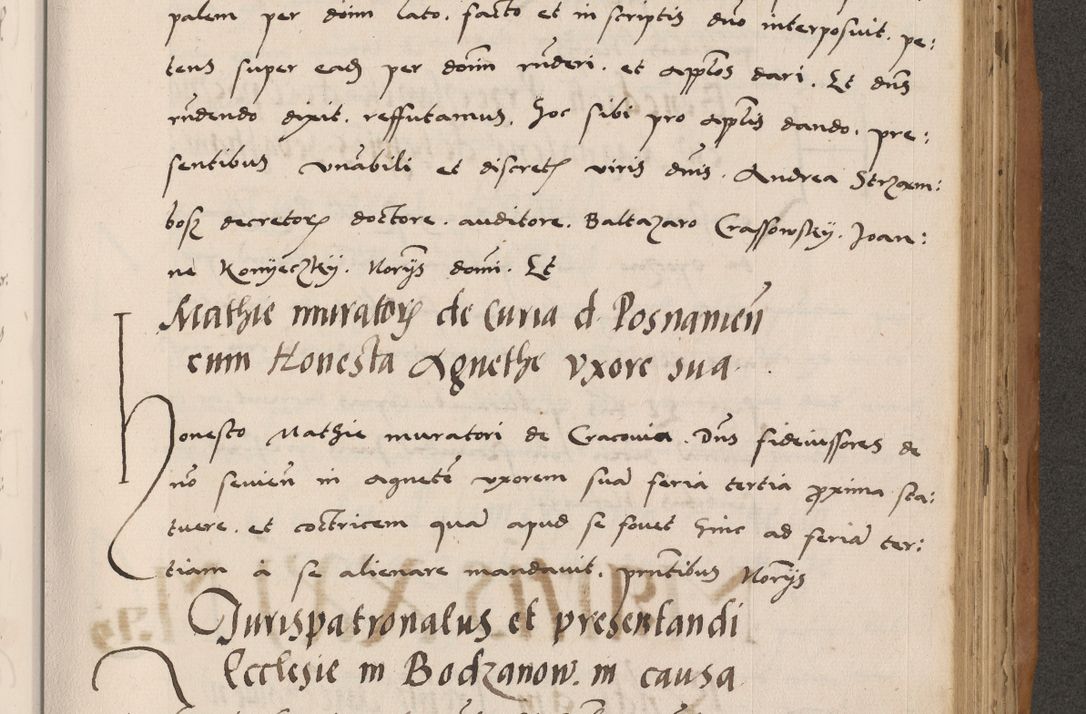 palem per doim lato. facto et in scriptis duo interposuit. pe:
tens super eadē per doim rnderi. et applos dari. Et dns
rndendo dixit. reffutamus. Hoc sibi pro aplis dando. pre:
sentibus vnabili et discretꝭ viris dnis. Andrea Strzam:
bosz decretorꝝ doctore. auditore. Baltazaro Crassowsky. Joan:
ne Konyeczky. Norijs domi. Et
Mathie muratorꝭ de Curia d. Posnanien̄
cum Honesta Agnethe vxore sua.
Honesto Mathie muratori de Cracovia. Dns fideiussores de
nō seuien̄ in Agnetē vxorem suā feria tertia proxima sta:
tuere. et coctricem quā apud se fouet hinc ad feriā ter:
tiam à se alienare mandauit. pn̄tibus Norijs
Jurispatronatus et presentandi
Ecclesie in Bodzanow. in causa